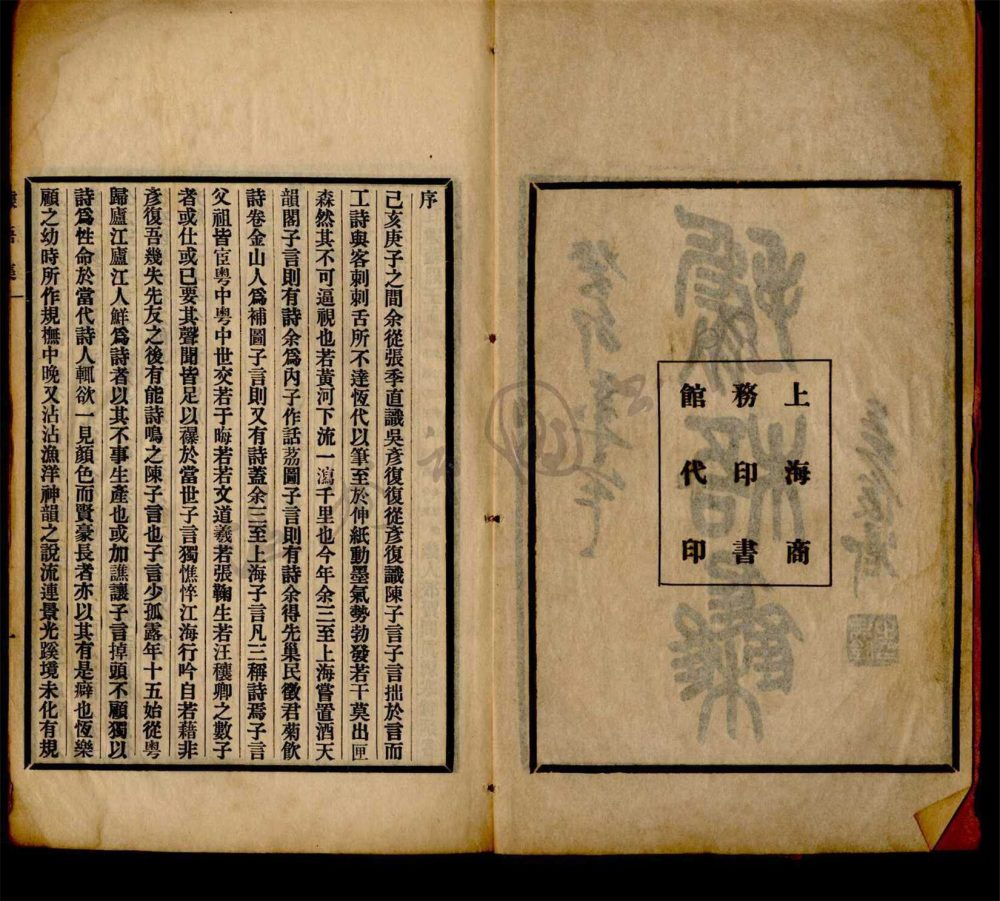 上海商
務印書
館代印
序
己亥庚子之間余從張季直識吳彥復復從彥復識陳子言子言拙於言而
工詩與客刺刺舌所不達恆代以筆至於伸紙動墨氣勢勃發若干莫出匣
森然其不可逼視也若黃河下流一瀉千里也今年余三至上海嘗置酒天
韻閣子言則有詩余爲內子作話荔圖子言則有詩余得先巢民徵君菊飲
詩卷金山人爲補圖子言則又有詩蓋余三至上海子言凡三稱詩焉子言
父祖皆宦粵中粵中世交若于晦若若文道羲若張鞠生若汪穰卿之數子
者或仕或已要其聲聞皆足以襮於當世子言獨憔悴江海行吟自若藉非
彥復吾幾失先友之後有能詩鳴之陳子言也子言少孤露年十五始從粵
歸廬江廬江人鮮爲詩者以其不事生產也或加譙讓子言掉頭不顧獨以
詩爲性命於當代詩人輒欲一見顏色而賢豪長者亦以其有是癖也恆樂
顧之幼時所作規撫中晚又沾沾漁洋神韻之說流連景光蹊境未化有規